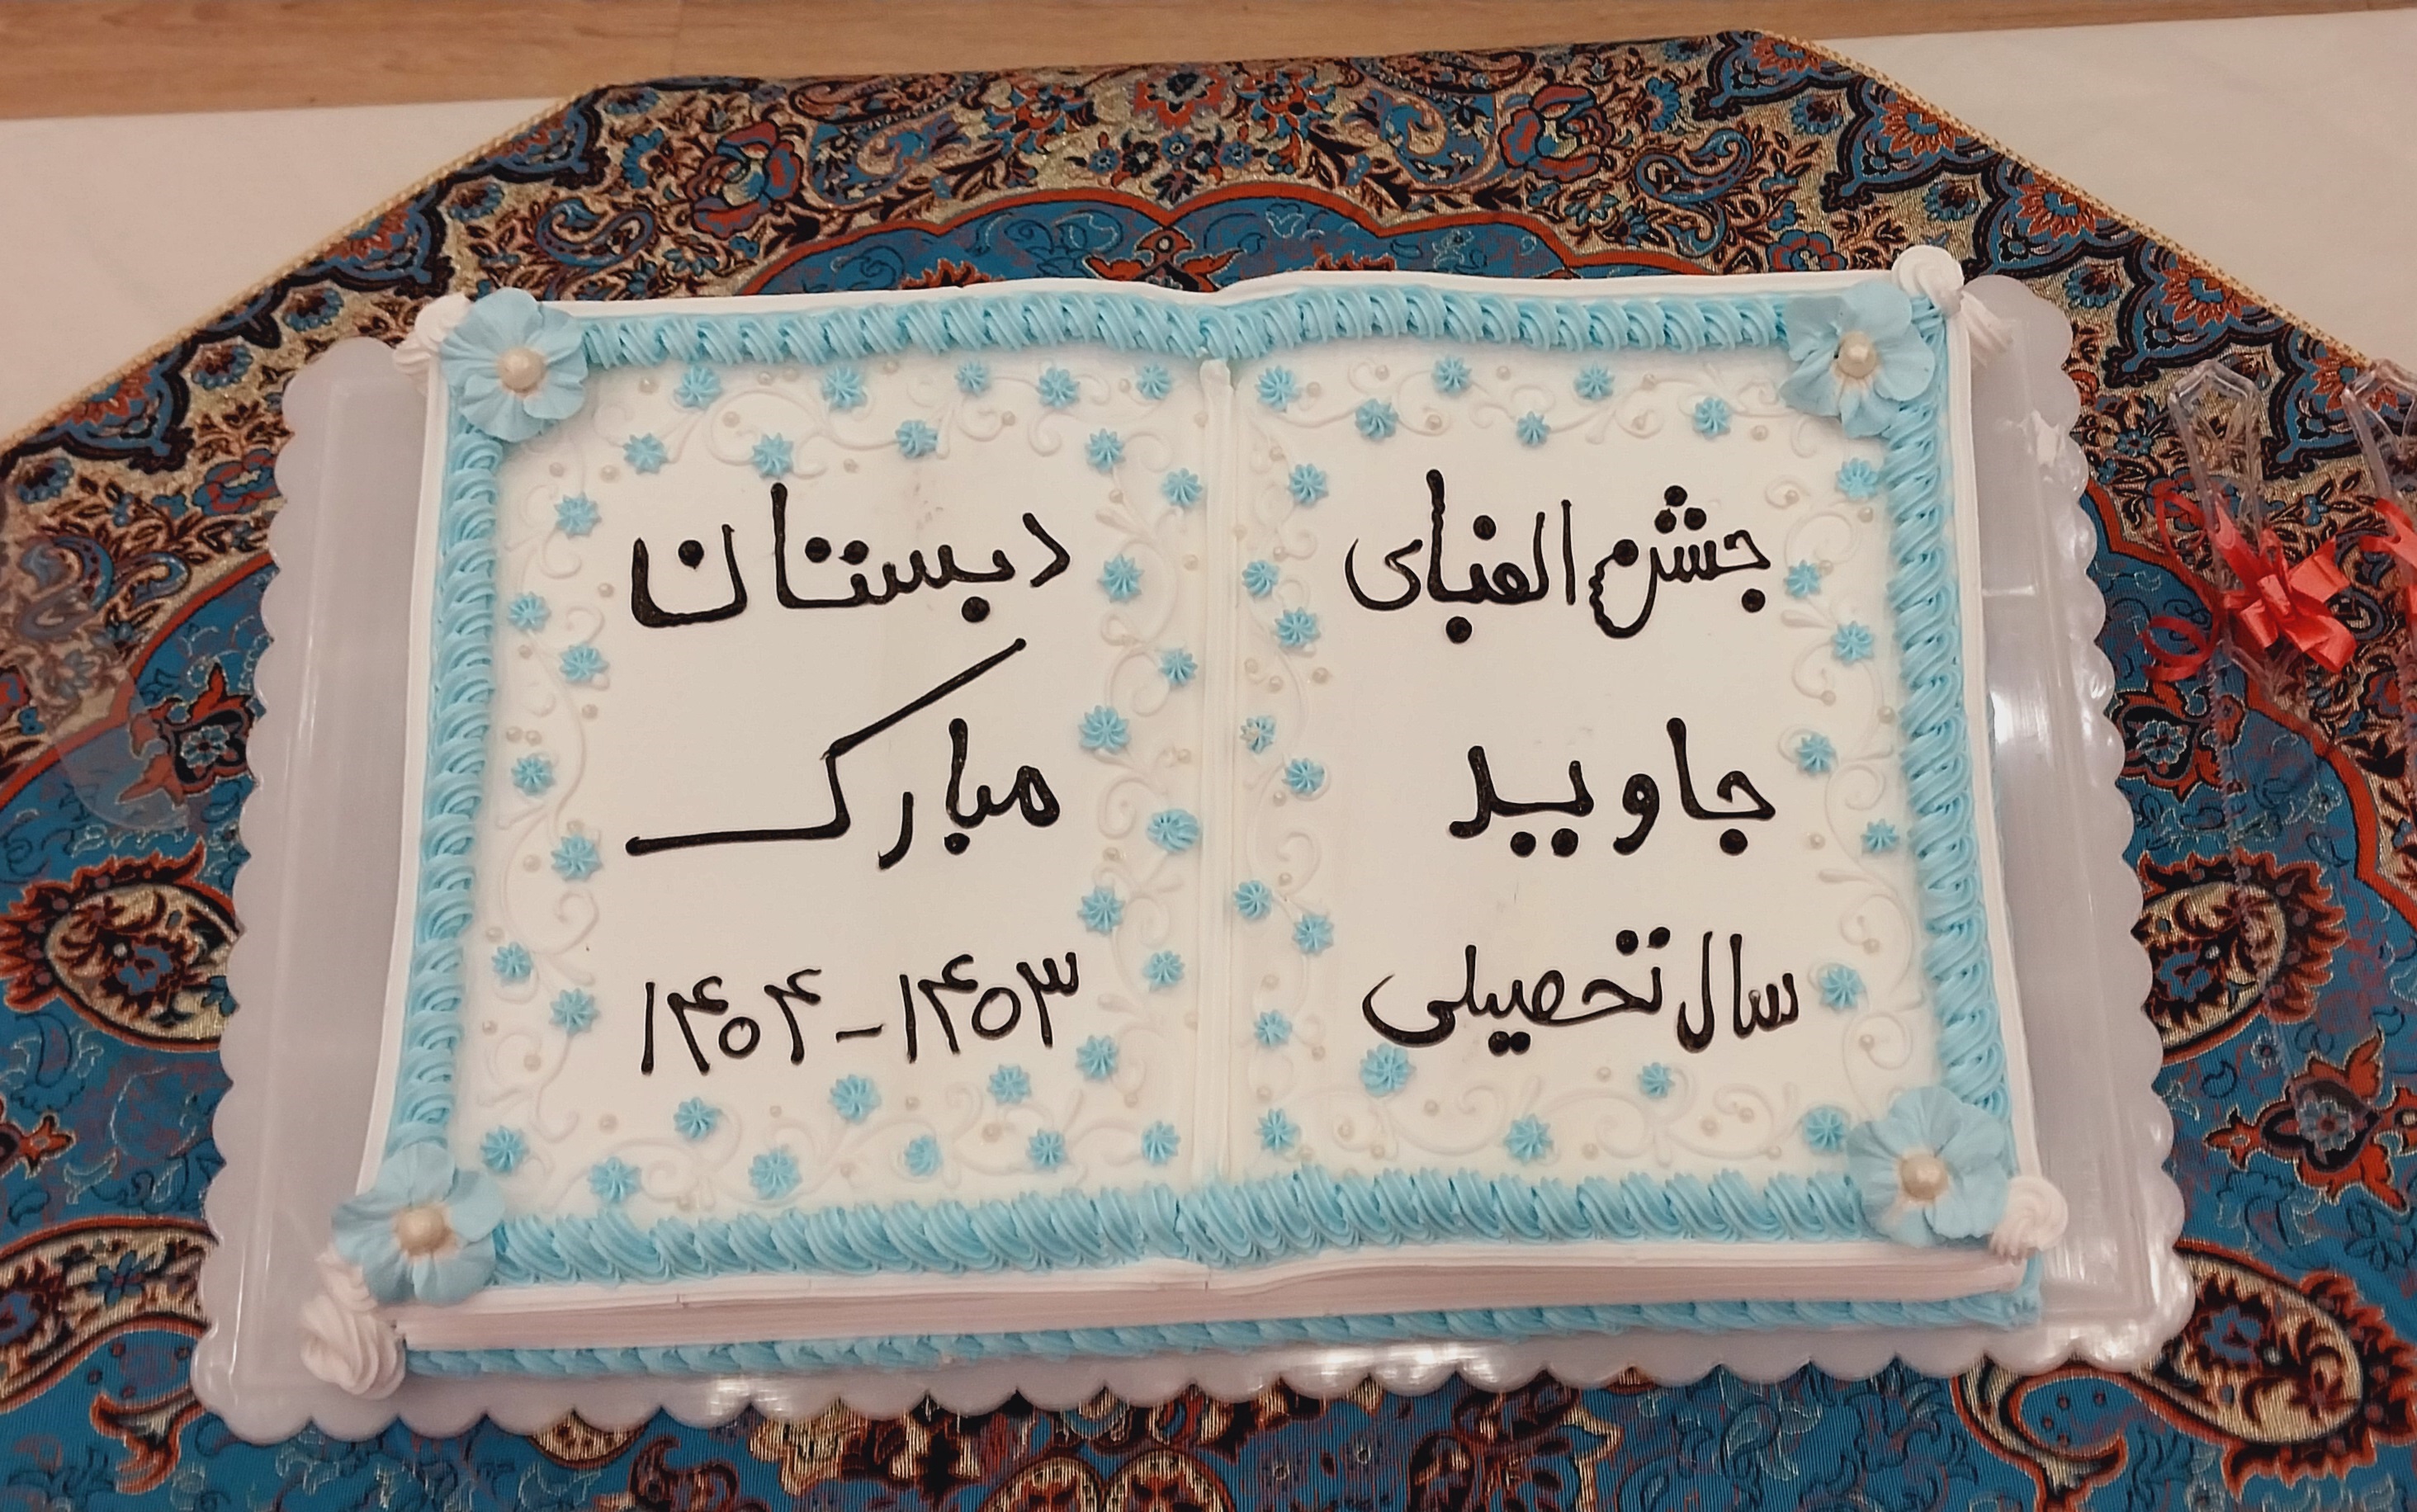 جشن الفبای
جاوید
سال تحصیلی
دبستان
مبارک
۱۴۰۴-۱۴۰۳